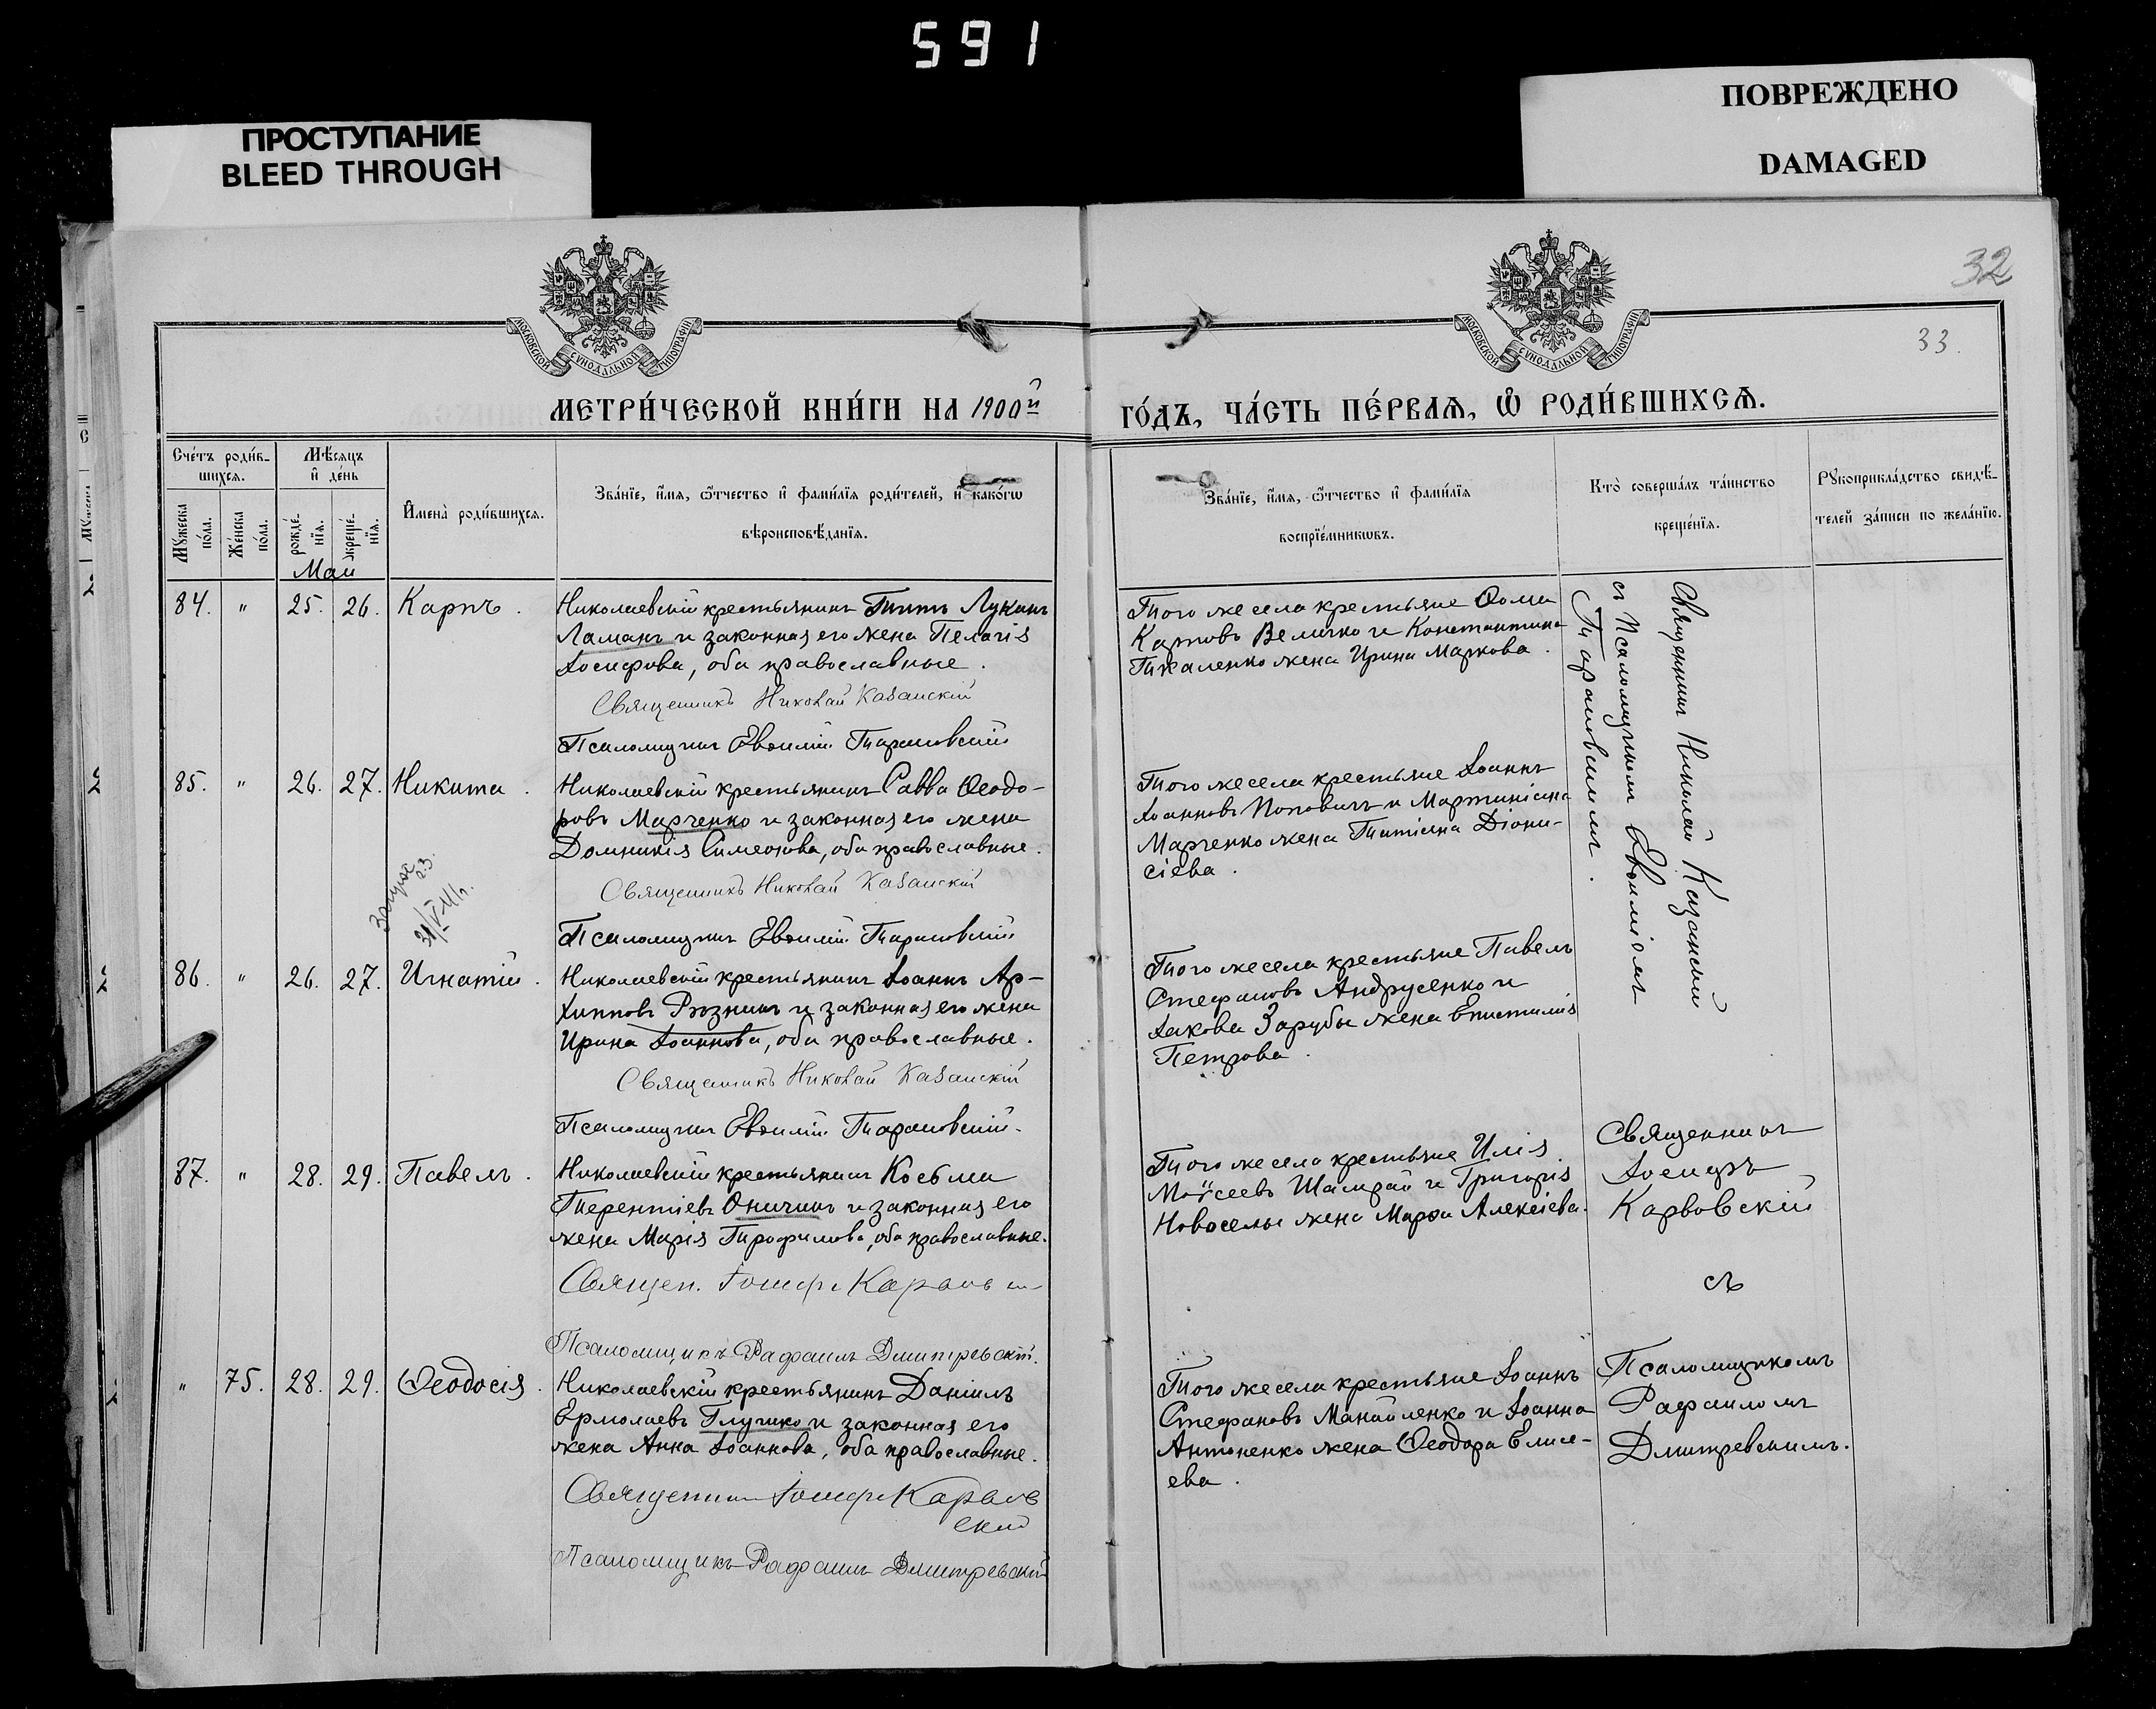 591
ПРОСТУПАНИЕ
BLEED THROUGH
ПОВРЕЖДЕНО
DAMAGED
32
33.
МОСКОВСКОЙ СУНОДАЛЬНОЙ ТИПОГРАФІИ
МОСКОВСКОЙ СУНОДАЛЬНОЙ ТИПОГРАФІИ
МЕТРИ́ЧЕСКОЙ КНИ́ГИ НА 1900й
ГО́ДЪ, ЧА́СТЬ ПЕ́РВАѦ, Ѽ РОДИ́ВШИХСѦ.
Сче́тъ роди́в-
шихсѧ.
Мѣ́сѧцъ
и҆ де́нь
Мꙋжеска по́ла.
Же́нска по́ла.
рожде́-нїѧ.
креще́-нїѧ.
И҆мена̀ роди́вшихсѧ.
Зва́нїе, и҆́мѧ, ѻ҆́тчество и҆ фами́лїѧ роди́телей, и҆ како́гѡ
вѣроисповѣ́данїѧ.
Зва́нїе, и҆́мѧ, ѻ҆́тчество и҆ фами́лїѧ
воспрїе́мникѡвъ.
Кто̀ соверша́лъ та́инство
креще́нїѧ.
Рꙋкоприкла́дство свидѣ́-
телей за́писи по жела́нїю.
Май
84. " 25. 26. Карпъ.
Николаевскій крестьянинъ Титъ Лукинъ
Ламанъ и законная его жена Пелагія
Іосифова, оба православные.
Священникъ Николай Казанскій
Псаломщикъ Евѳимій Тарановскій
Того же села крестьяне Ѳома
Карповъ Величко и Константина
жена Ирина Маркова.
Священникъ Николай Казанскій
съ Псаломщикомъ Евѳиміемъ
Тарановскимъ.
85. " 26. 27. Никита.
Николаевскій крестьянинъ Савва Ѳеодо-
ровъ Марченко и законная его жена
Домникія Симеонова, оба православные.
Священникъ Николай Казанскій
Псаломщикъ Евѳимій Тарановскій
Того же села крестьяне Іоаннъ
Іоанновъ Поповичъ и Мартиніана
Марченко жена Татіана Діони-
сіева.
86. " 26. 27. Игнатій.
Николаевскій крестьянинъ Іоаннъ Ар-
хиповъ Рѣзникъ и законная его жена
Ирина Іоаннова, оба православные.
Священникъ Николай Казанскій
Псаломщикъ Евѳимій Тарановскій.
Того же села крестьяне Павелъ
Стефановъ Андрусенко и
Іакова Зарубы жена Епистимія
Петрова.
87. " 28. 29. Павелъ.
Николаевскій крестьянинъ Косьма
Терентіевъ Оничинъ и законная его
жена Марія Трофимова, оба православные.
Священ. Іосифъ
Псаломщикъ Рафаилъ Дмитревскій.
Того же села крестьяне Илія
Моѵсеевъ Шамрай и Григорія
Новоселы жена Марѳа Алексіева.
Священникъ
Іосифъ
Карвовскій
съ
" 75. 28. 29. Ѳеодосія.
Николаевскій крестьянинъ Даніилъ
Ермолаевъ Глушко и законная его
жена Анна Іоаннова, оба православные.
Священникъ Іосифъ Карвов
скій
Псаломщикъ Рафаилъ Дмитревскій
Того же села крестьяне Іоаннъ
Стефановъ Манойленко и Іоанна
Антоненко жена Ѳеодора Елисе-
ева.
Псаломщикомъ
Рафаиломъ
Дмитревскимъ.